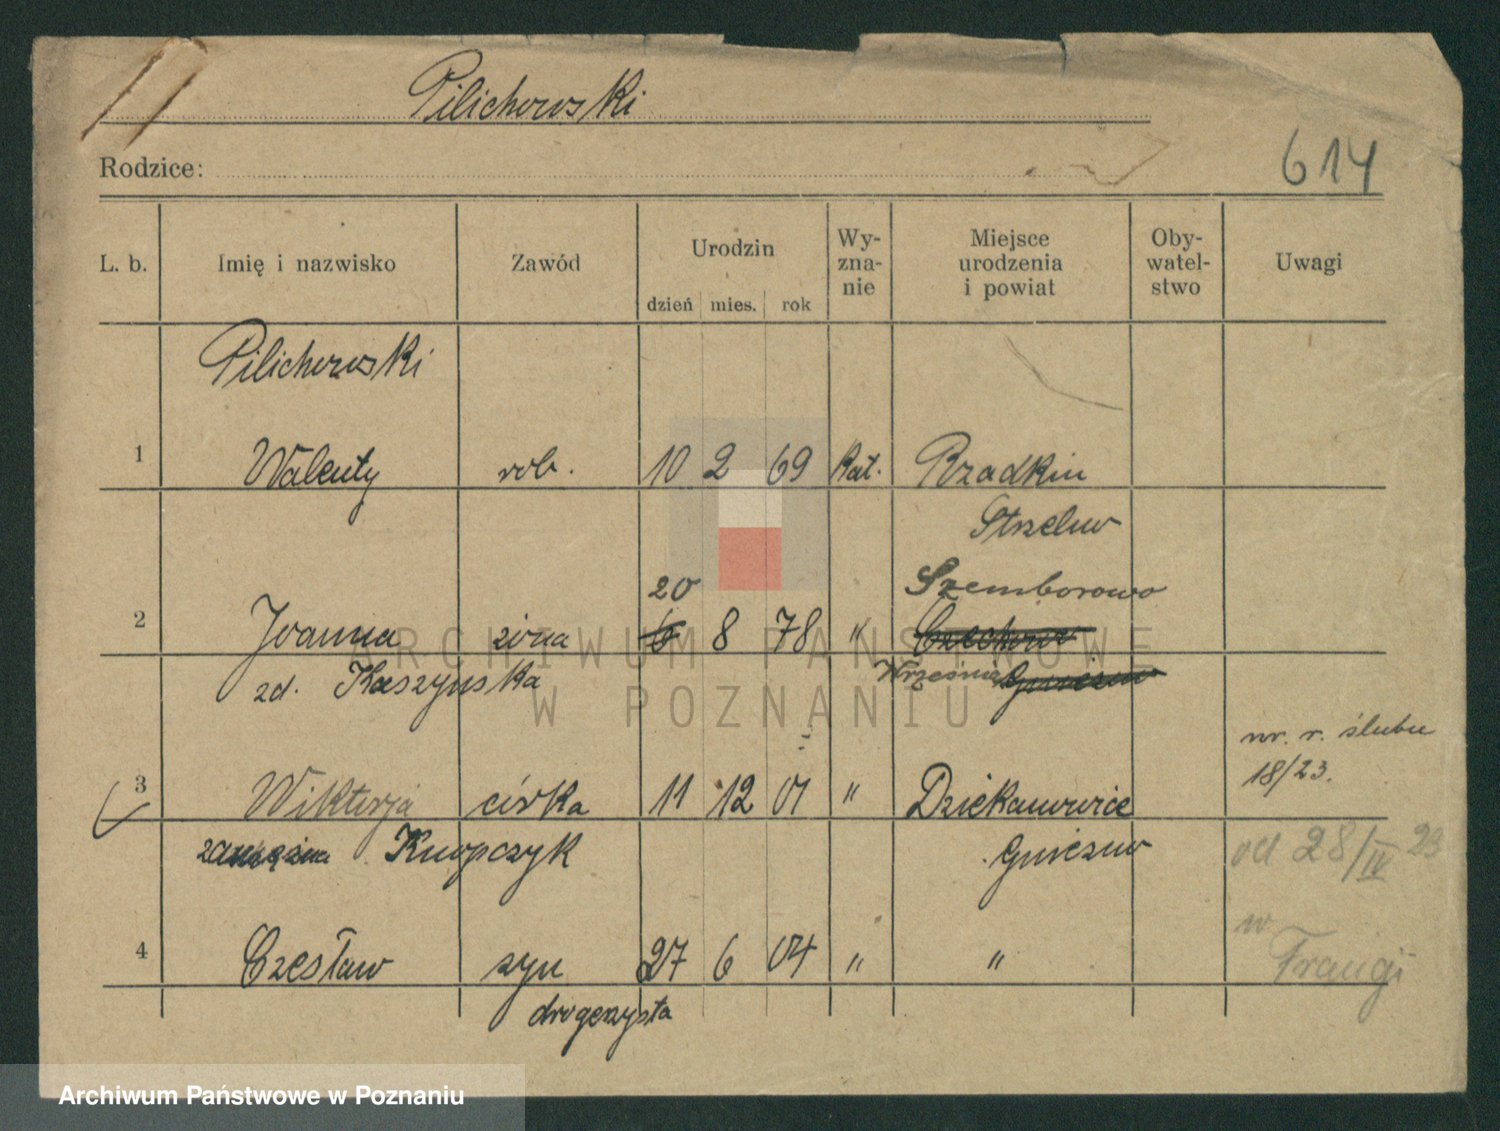 Pilichowski
Rodzice:
614
L. b. Imię i nazwisko Zawód Urodzin dzień mies. rok Wy-zna-nie Miejsce urodzenia i powiat Oby-watel-stwo Uwagi
Pilichowski
1 Walenty rob. 10 2 69 kat. Rzadkin
Strzelno
20 Szemborowo
2 Joanna żona 6 8 78 " Czechowo
zd. Kaszyńska Września Gniezno
nr. r. ślubu
18/23.
3 Wiktorja córka 11 12 01 " Dziekanowice
zamężna Knopczyk Gniezno
od 28/IV 23
w
4 Czesław syn 27 6 04 " "
Francji
drogerzysta
ARCHIWUM PAŃSTWOWE
W POZNANIU
Archiwum Państwowe w Poznaniu